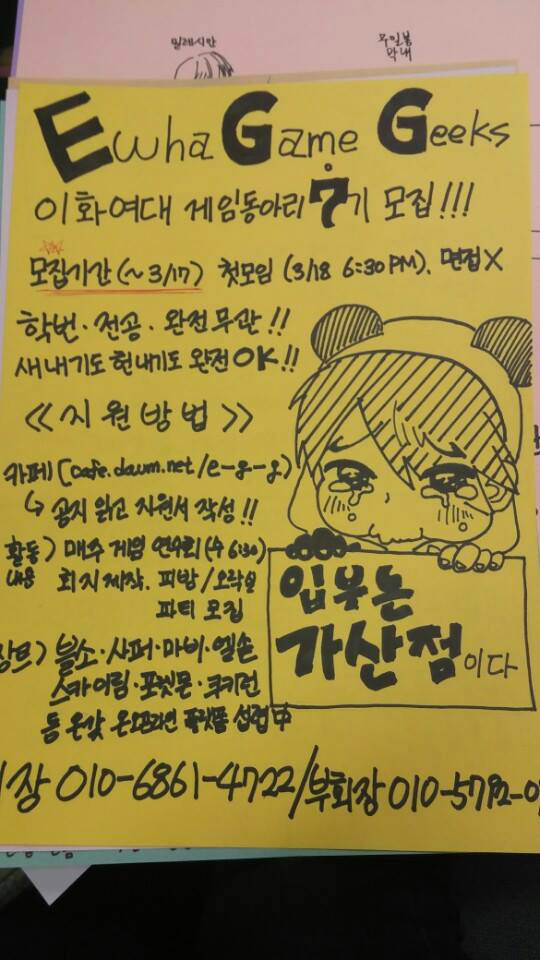 밀레시안
무일봉
막내
Ewha Game Geeks
이화여대 게임동아리 7기 모집!!!
모집기간 (~3/17) 첫모임 (3/18 6:30PM). 면접X
학번·전공·완전무관!!
새내기도 헌내기도 완전OK!!
<<지원방법>>
카페 (cafe.daum.net/e-g-g)
↳ 공지 읽고 지원서 작성!!
활동> 매주 게임 연구회 (수 6:30)
내용 회지제작. 피방/오락실
파티 모집
장르> 블소·사퍼·마비·엘소
스카이림·포켓몬·쿠키런
등 온갖 온오프라인 플랫폼 섭렵中
입붓는
가산점이다
장 010-6861-4722/부회장 010-5792-0